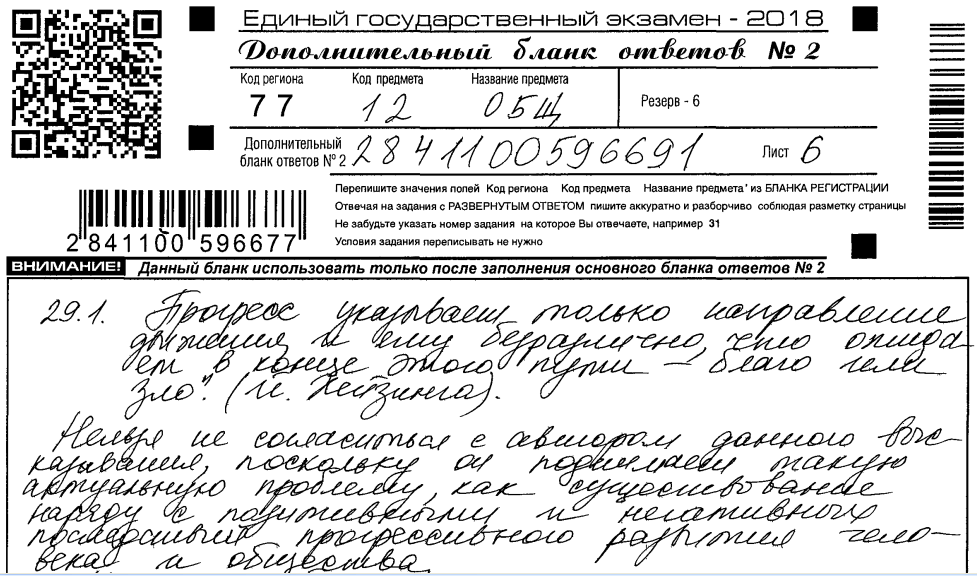 Единый государственный экзамен - 2018
Дополнительный бланк ответов № 2
Код региона Код предмета Название предмета
77 12 ОБЩ
Резерв - 6
Дополнительный
бланк ответов № 2 2841100596691 Лист 6
Перепишите значения полей Код региона Код предмета Название предмета из БЛАНКА РЕГИСТРАЦИИ
Отвечая на задания с РАЗВЕРНУТЫМ ОТВЕТОМ пишите аккуратно и разборчиво соблюдая разметку страницы
Не забудьте указать номер задания на которое Вы отвечаете, например 31
Условия задания переписывать не нужно
2 841100 596677
ВНИМАНИЕ! Данный бланк использовать только после заполнения основного бланка ответов № 2
29.1. "Прогресс указывает только направление
движения, и ему безразлично, что ожида-
ет в конце этого пути – благо или
зло". (Й. Хейзинга).
Нельзя не согласиться с автором данного выс-
казывания, поскольку он поднимает такую
актуальную проблему, как существование
наряду с позитивными и негативных
последствий прогрессивного развития чело-
века и общества.